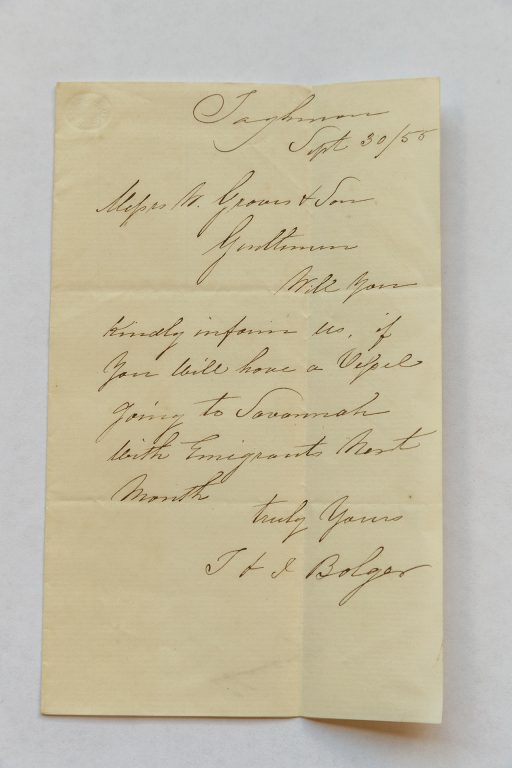 Taghmon
Sept 30/50
Messrs W. Graves & Son
Gentlemen
Will You
Kindly inform us, if
You Will have a Vessel
going to Savannah
With Emigrants Next
Month
truly Yours
T & J Bolger